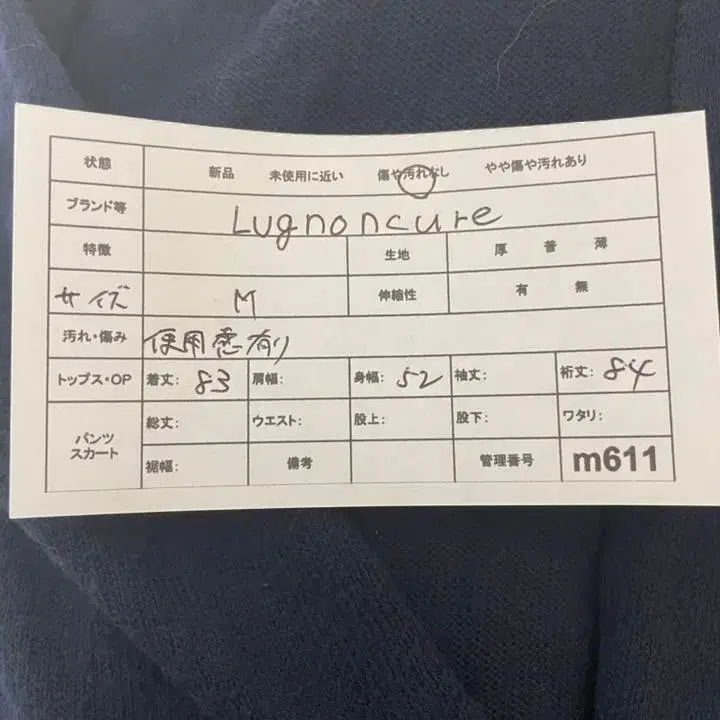 状態 新品 未使用に近い 傷や汚れなし やや傷や汚れあり
ブランド等 Lugnoncure
特徴 生地 厚 普 薄
サイズ M 伸縮性 有 無
汚れ・傷み 使用感有り
トップス・OP 着丈: 83 肩幅: 身幅: 52 袖丈: 裄丈: 84
パンツ
スカート
総丈: ウエスト: 股上: 股下: ワタリ:
裾幅: 備考 管理番号 m611